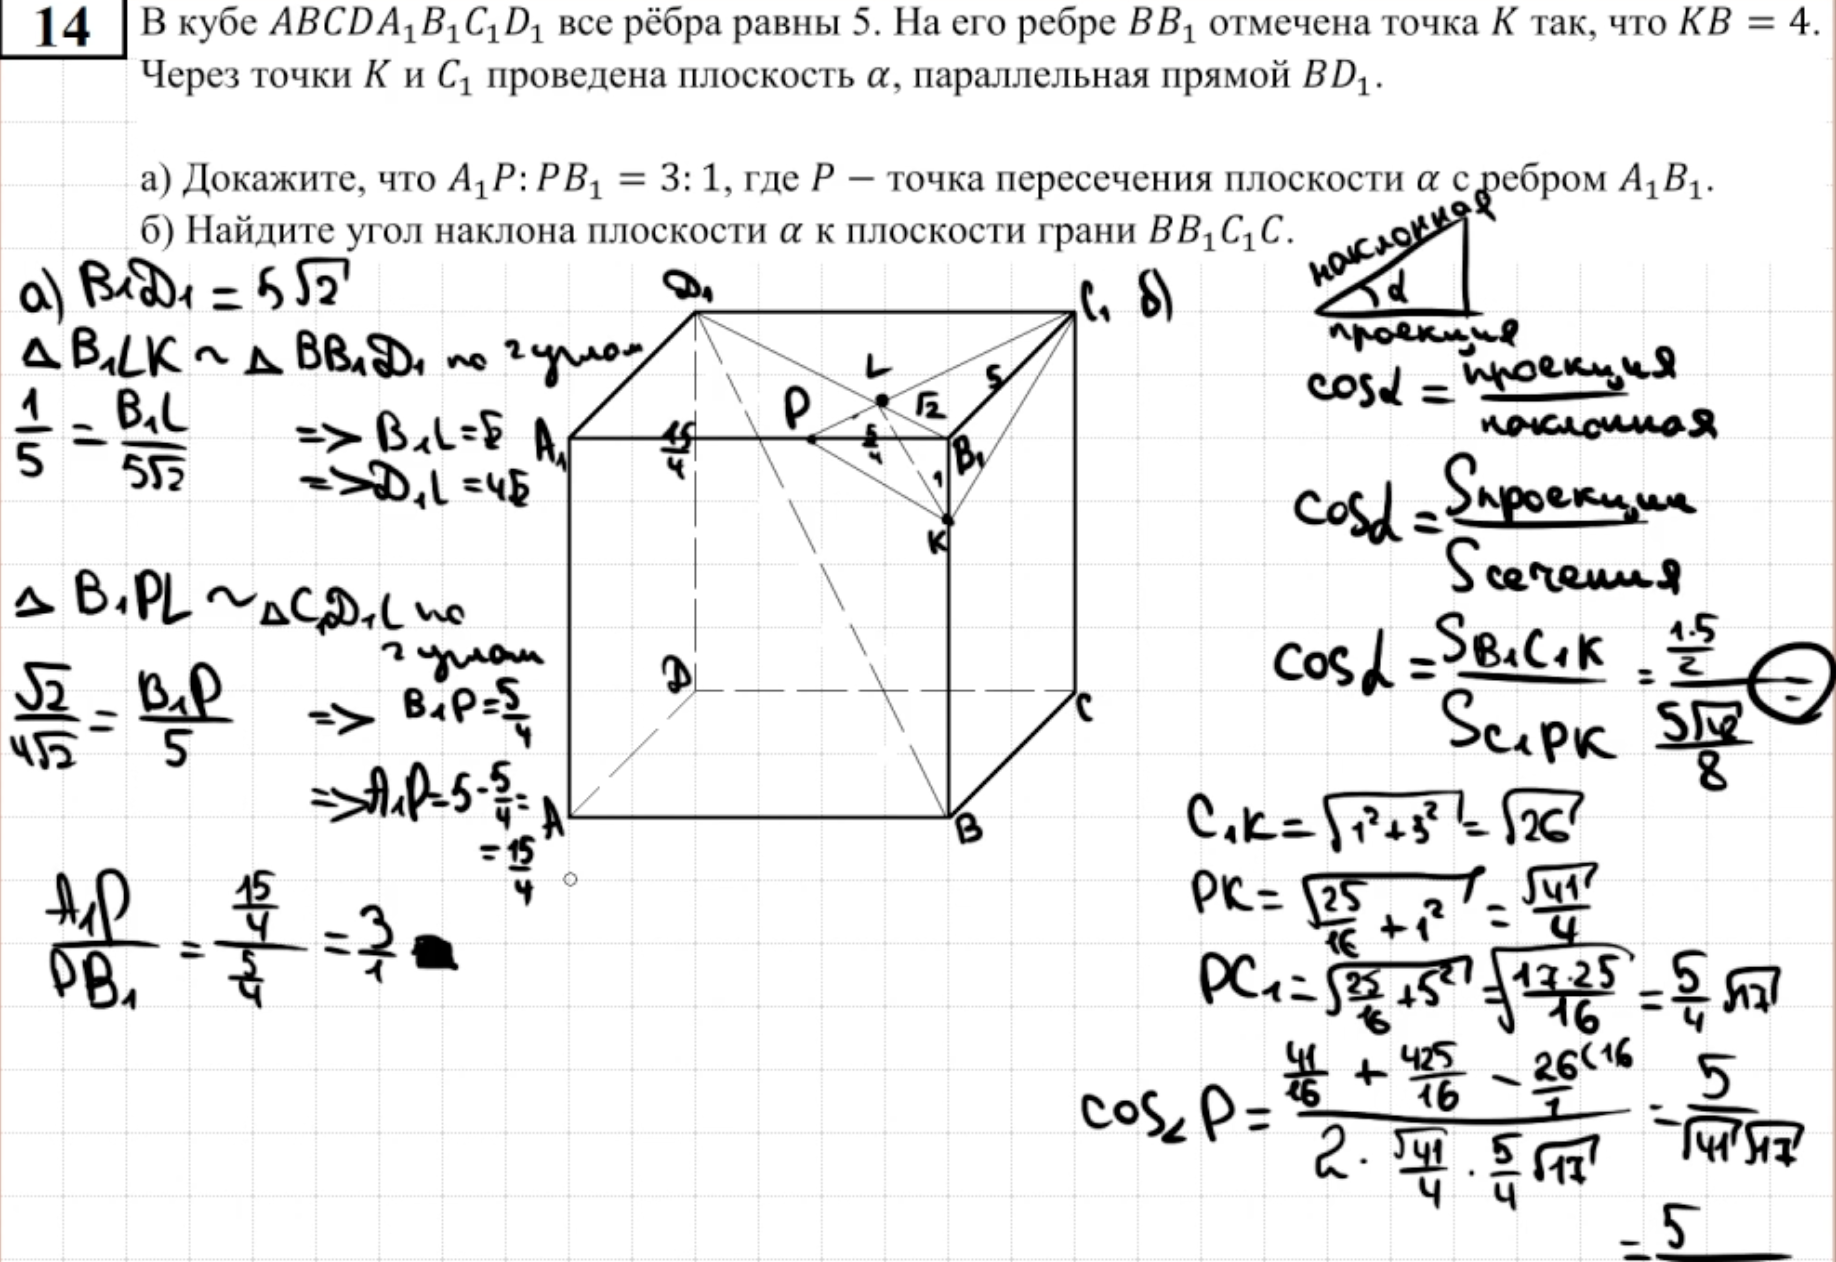 14
В кубе ABCDA₁B₁C₁D₁ все рёбра равны 5. На его ребре BB₁ отмечена точка K так, что KB = 4.
Через точки K и C₁ проведена плоскость α, параллельная прямой BD₁.
а) Докажите, что A₁P: PB₁ = 3: 1, где P − точка пересечения плоскости α с ребром A₁B₁.
б) Найдите угол наклона плоскости α к плоскости грани BB₁C₁C.
а) B₁D₁ = 5√2
△ B₁LK ~ △ BB₁D₁ по 2 углам
1/5 = B₁L/5√2 => B₁L = √2
=> D₁L = 4√2
△ B₁PL ~ △C₁D₁L по
2 углам
√2/4√2 = B₁P/5 => B₁P = 5/4
=> A₁P = 5 - 5/4 =
= 15/4
A₁P/PB₁ = 15/4 / 5/4 = 3/1
D₁
C₁
L
5
P
√2
A₁
15/4
5/4
B₁
1
K
D
C
A
B
б)
наклонная
α
проекция
cosα = проекция/наклонная
cosα = Sпроекции/Sсечения
cosα = S B₁C₁K / S C₁PK = 1·5/2 / 5√42/8 =
C₁K = √1² + 5² = √26
PK = √25/16 + 1² = √41/4
PC₁ = √25/16 + 5² = √17·25/16 = 5/4 √17
cos∠P = 41/16 + 425/16 − 26(16/1 / 2 · √41/4 · 5/4 √17 = 5/√41 √17
= 5